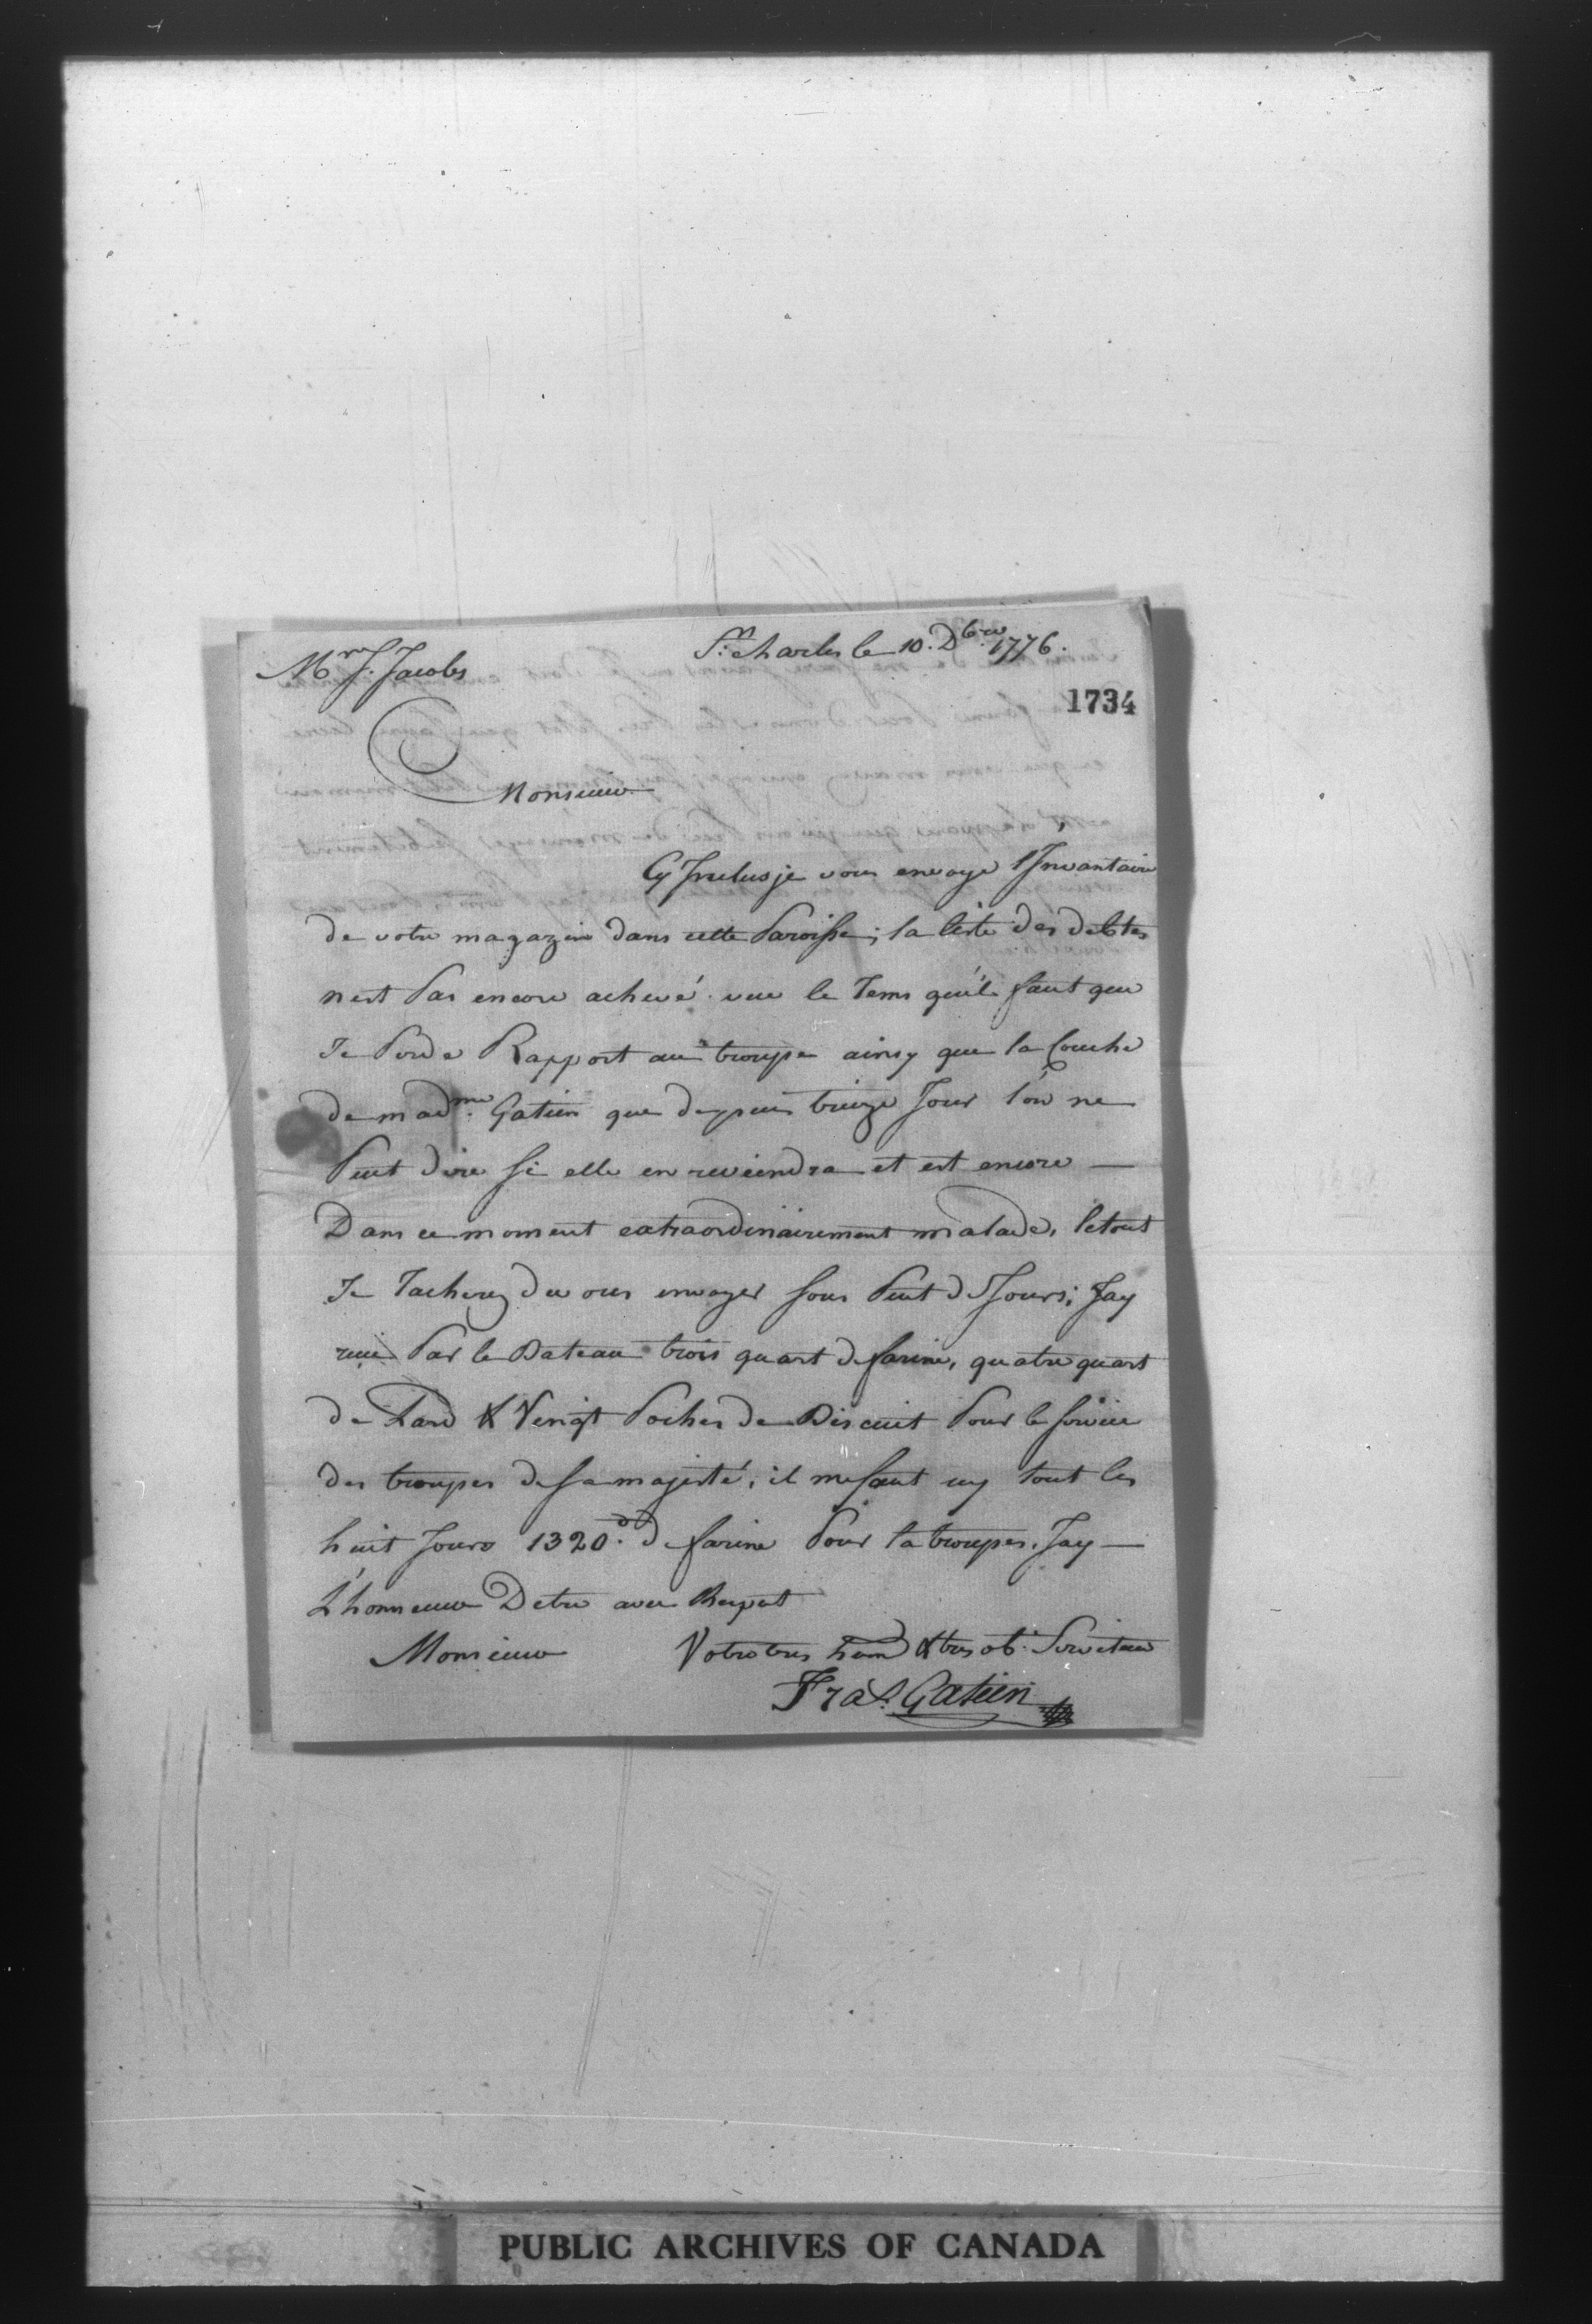 St. charles le 10. Dbre 1776.
Mr J. Jacobs
1734
Monsieur
Cy Inclus je vous envoye l'Invantaire
de votre magazin dans cette Paroisse; la liste des debtes
nest Pas encore achevé vue le Tems qu'il faut que
Je Perde Rapport aux troupe ainsy que la Couche
de madme. Gatien que depuis treize Jour l'on ne
Peut dire si elle en reviendra et est encore —
Dans ce moment extraordinairement malade, letout
Je Tacherez de vous envoyer sous Peut de Jours; Jay
reçu Par le Bateau trois quart de farine, quatre quart
de Lard & Vengt Poches de Biscuit Pour le service
des troupes de sa majesté, il me faut icy tout les
huit Jours 1320 de farine Pour la troupes. Jay —
L'honneur Detre avec Respect
Monsieur Votre tres hum & tres ob. Serviteur
Fras. Gatien
PUBLIC ARCHIVES OF CANADA